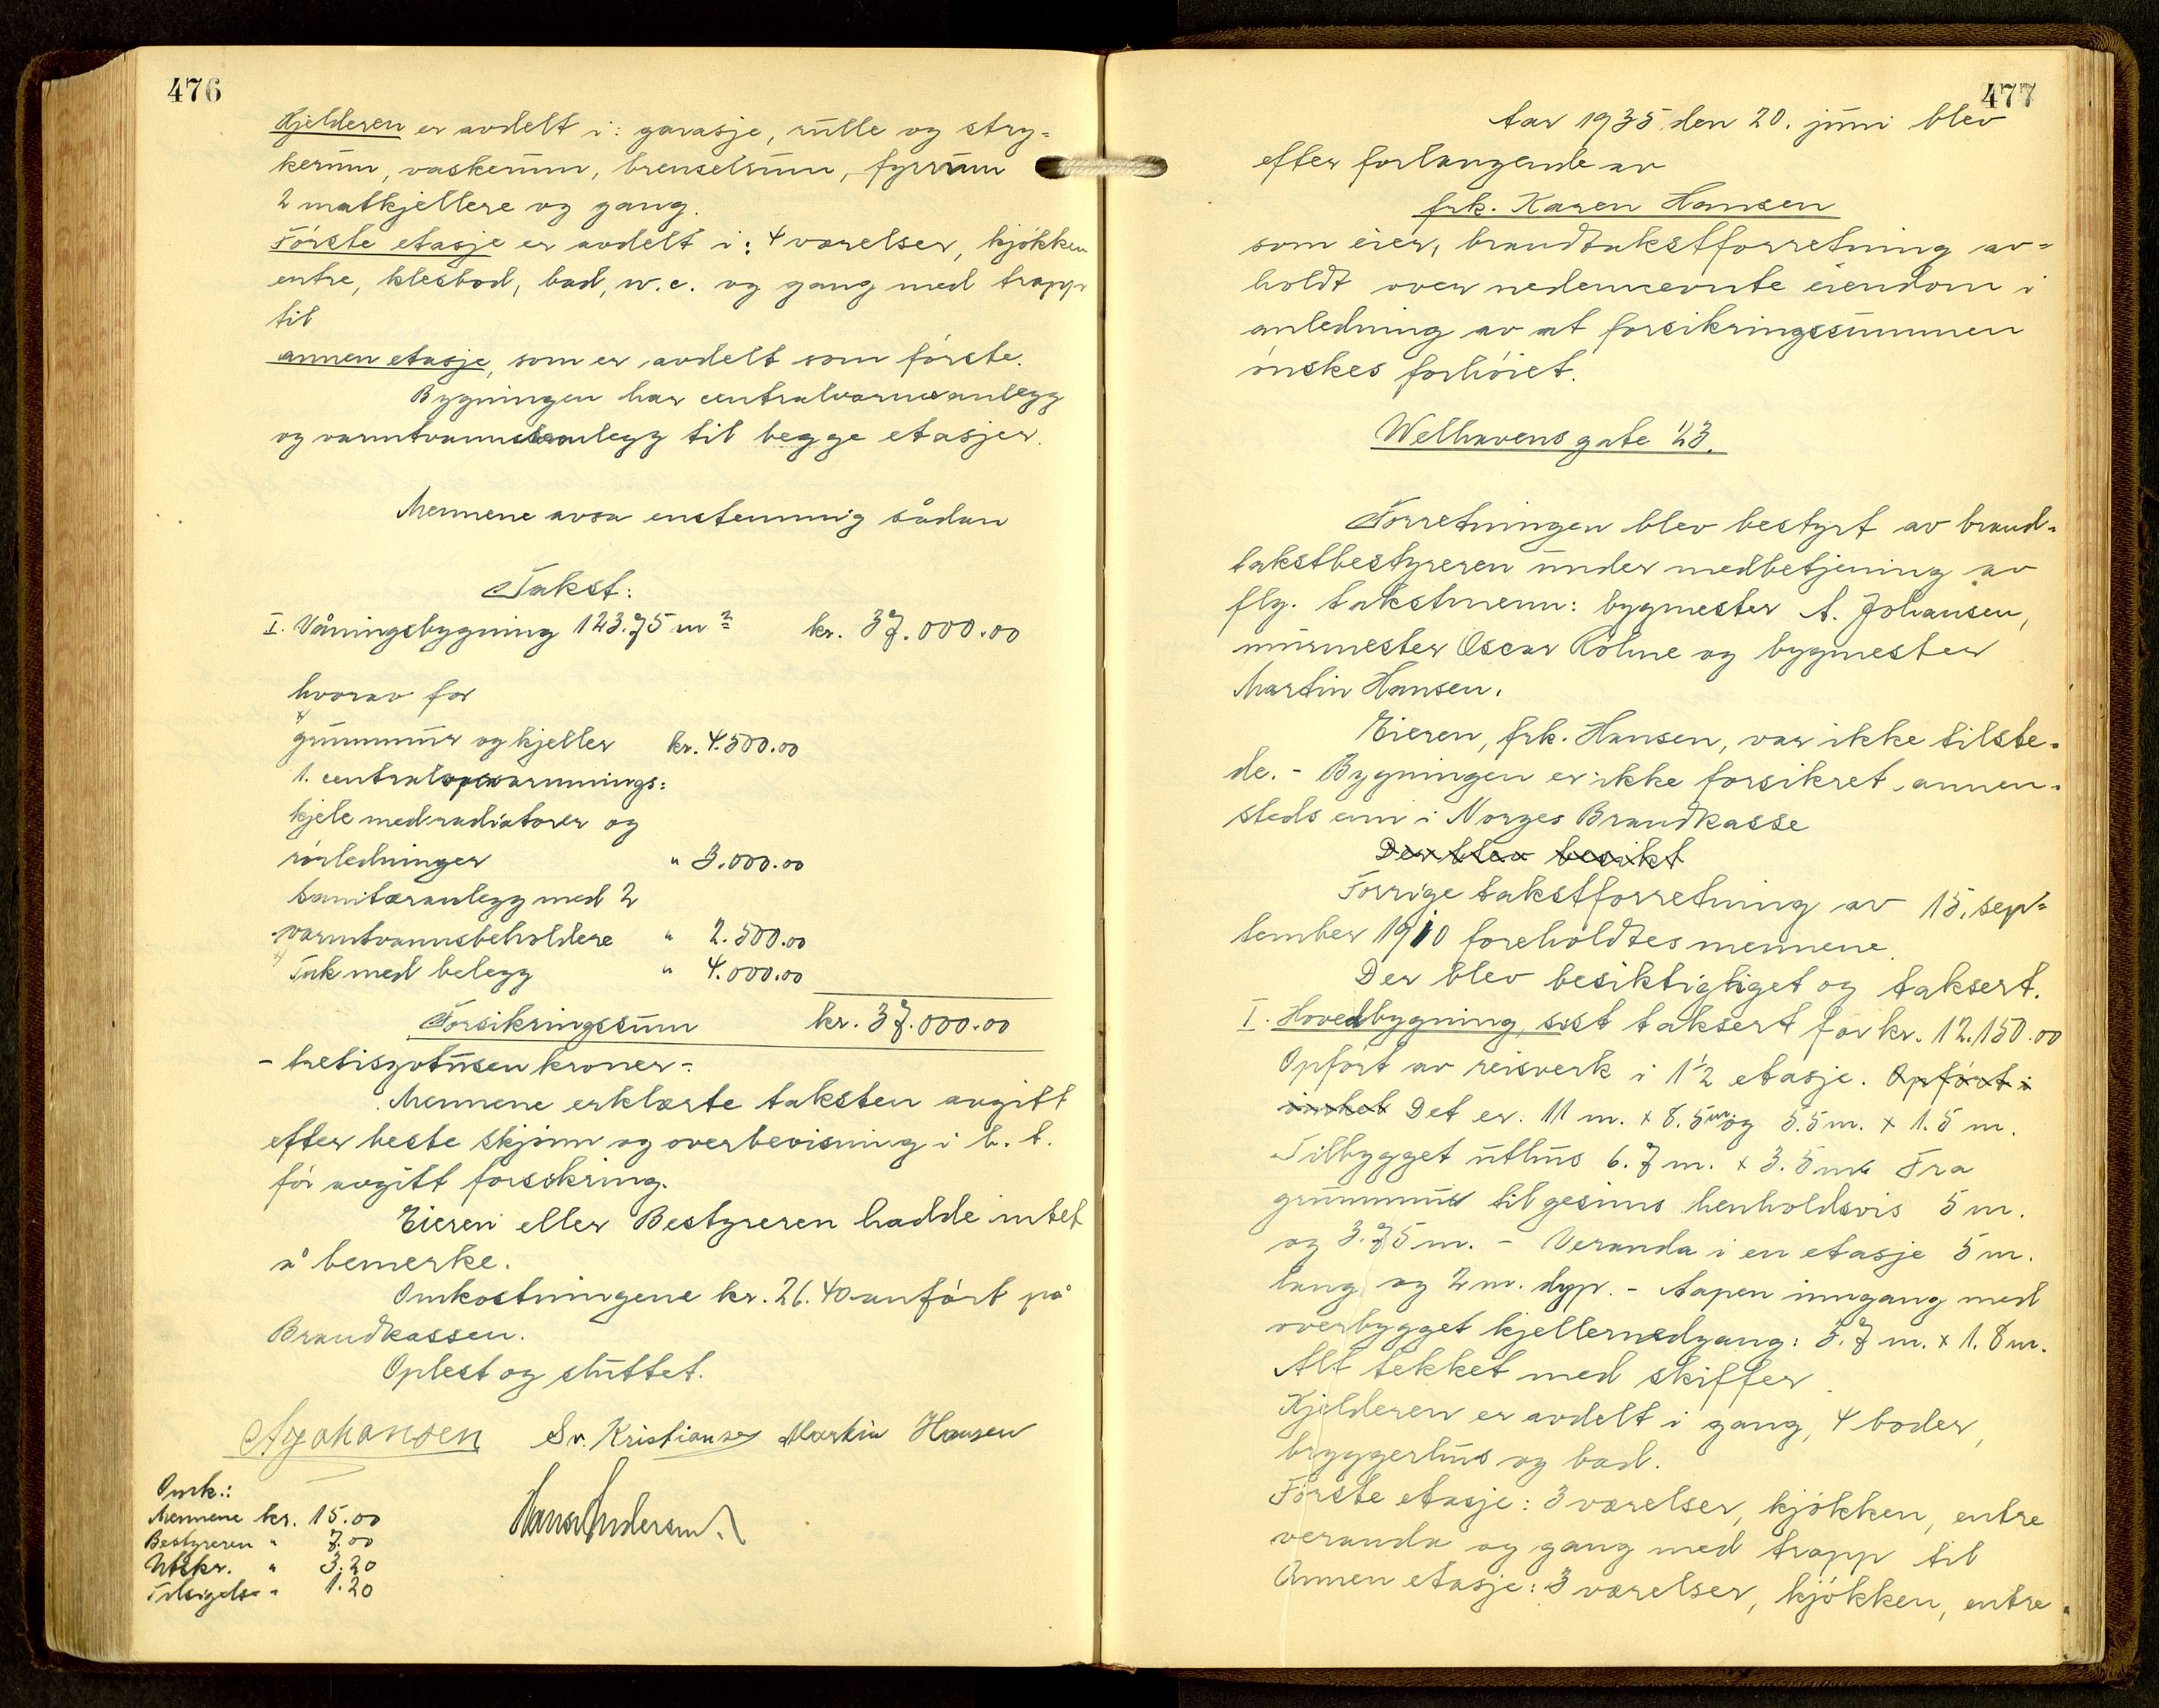 476
Kjelderen er avdelt i: garasje, rulle og stry-
kerum, vaskerum, brenselsrum, fyrrum
2 matkjellere og gang.
Förste etasje er avdelt i: 4 værelser, kjökken
entre, klesbod, bad, w.c. og gang med trapp
til
annen etasje, som er avdelt som förste.
Bygningen har centralvarmeanlegg
og varmtvannsanlegg til begge etasjer.
Mennene avsa enstemmig sådan
Takst:
I. Våningsbygning 123.75 m² kr. 37.000.00
hvorav for
grunnmur og kjeller kr. 4.500.00
1. centralopvarmnings-
kjele med radiatorer og
rörledninger " 3.000.00
Sanitæranlegg med 2
varmtvannsbeholdere " 2.500.00
Tak med belegg " 4.000.00
Forsikringssum kr. 37.000.00
- tretisyvtusen kroner -
Mennene erklærte taksten avgitt
efter beste skjönn og overbevisning i h. t.
för avgitt forsikring.
Eieren eller Bestyreren hadde intet
å bemerke.
Omkostningene kr. 26.40 anfört på
Brandkassen.
Oplest og sluttet.
A Johansen Sv. Kristiansen Martin Hansen
Hans Andersen
Omk.:
Mennene kr. 15.00
Bestyreren " 7.00
Utskr. " 3.20
Tilsigelse " 1.20
477
Aar 1935 den 20. juni blev
efter forlangende av
frk. Karen Hansen
som eier, brandtakstforretning av-
holdt over nedennevnte eiendom i
anledning av at forsikringssummen
önskes forhöiet.
Welhavens gate 23.
Forretningen blev bestyrt av brand-
takstbestyreren under medbetjening av
flg. takstmenn: bygmester A. Johansen,
murmester Oscar Röhne og bygmester
Martin Hansen.
Eieren, frk. Hansen, var ikke tilste-
de. - Bygningen er ikke forsikret annen-
steds enn i Norges Brandkasse
Der blev besikt
Forrige takstforretning av 15. sep-
tember 1910 foreholdtes mennene.
Der blev besiktigtiget og taksert.
I. Hovedbygning, sist taksert for kr. 12.150.00
Opfört av reisverk i 1½ etasje. Opfört i
vinkel Det er: 11 m. x 8.5 m. og 5.5 m. x 1.5 m.
Tilbygget uthus 6.7 m. x 3.5 m. Fra
grunnmur til gesims henholdsvis 5 m.
og 3.75 m. - Veranda i en etasje 5 m.
lang og 2 m. dyp. - Aapen inngang med
overbygget kjellernedgang: 3.7 m. x 1.8 m.
Alt tekket med skiffer.
Kjelderen er avdelt i gang, 4 boder,
bryggerhus og bad.
Förste etasje: 3 værelser, kjökken, entre
veranda og gang med trapp til
Annen etasje: 3 værelser, kjökken, entre